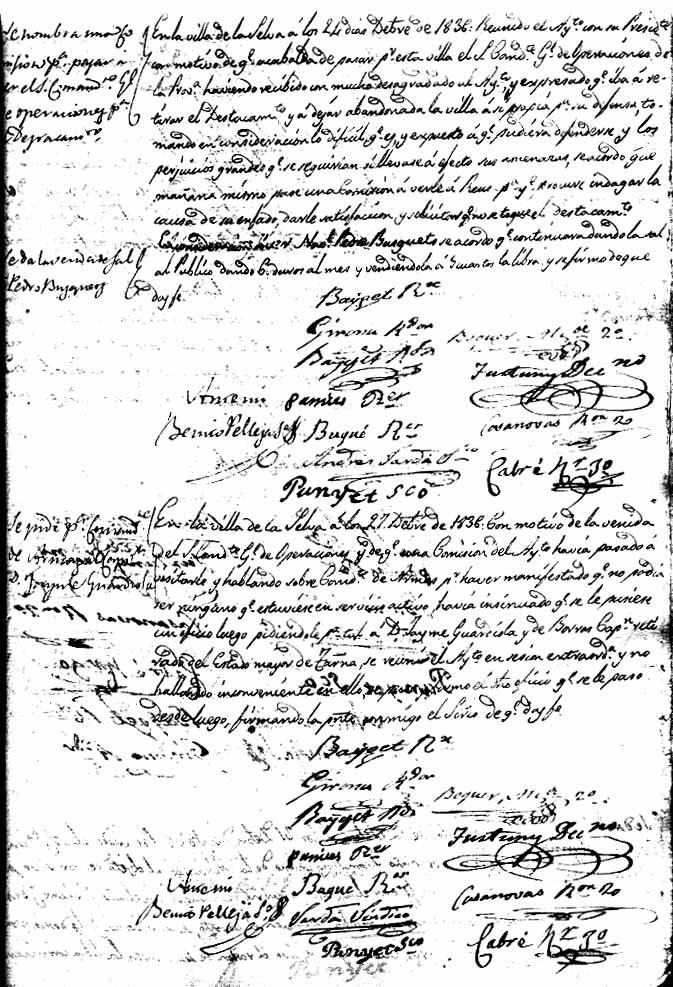 Se nombra una Co
mision p.ª pasar a
ver el S. Comand.te G.l
de operaciones p.r
el Destacam.to
En la villa de la Selva á los 24 dias Debre de 1836: Reunido el Ay.to con su Presid.te
con motivo de q.e acababa de pasar p.r esta villa el S. Comd.te G.l de Operaciones de
la Prov.a haviendo recibido con mucho desagrado al Ay.to, y expresado q.e iba á re-
tirar el Destacam.to y a dejar abandonada la villa á si propia p.a su defensa, to-
mando en consideracion lo dificil q.e es, y expuesto á q.e pudiera defenderse y los
perjuicios grandes q.e se seguirian si llevase á efecto sus amenazas, se acordó que
mañana mismo pase una Comision á verle á Reus p.a q.e procure indagar la
causa de su enfado, darle satisfaccion y solicitar q.e no saque el destacam.to
Se da la venda de sal
á Pedro Busquets
Pedro Busquets se acordó q.e continuara dando la sal
al Publico dando 6 duros al mes y vendiendola á 5 cuartos la libra. y se firmó de que
doy fe.
Bayget
Girona
Bayget
Boquer 2.o
Fortuny Dec.no
Pamies R.or
Benito Pelleja
Buqué R.or
Casanovas R.or 2o
Andres Sardá
Cabré 3o
Punyet Sco
Se pide p.r Comand.te
de Armas al Cap.n
D. Jayme Guardiola
En la villa de la Selva á los 27 Debre de 1836: Con motivo de la venida
del S. Comd.te G.l de Operaciones y de q.e una Comision del Ay.to havia pasado á
visitarle y hablando sobre Comd.te de Armas p.r haver manifestado q.e no podia
ser ninguno q.e estuviese en servicio activo, havia insinuado q.e se le pusiese
un oficio luego pidiendole p.r tal a D. Jayme Guardiola y de Borras Cap.n reti-
rado del Estado mayor de Tarna, se reunió el Ay.to en sesion extraord.a y no
hallando inconveniente en ello, oficio q.e se le pasó
desde luego, firmando la pnte conmigo el Srio de q.e doy fe
Bayget
Girona
Bayget
Boquer 2o
Fortuny Dec.no
Pamies R.or
Benito Pelleja
Buqué R.or
Casanovas R.or 2o
Sardá Sindico
Cabré 3o
Punyet Sco